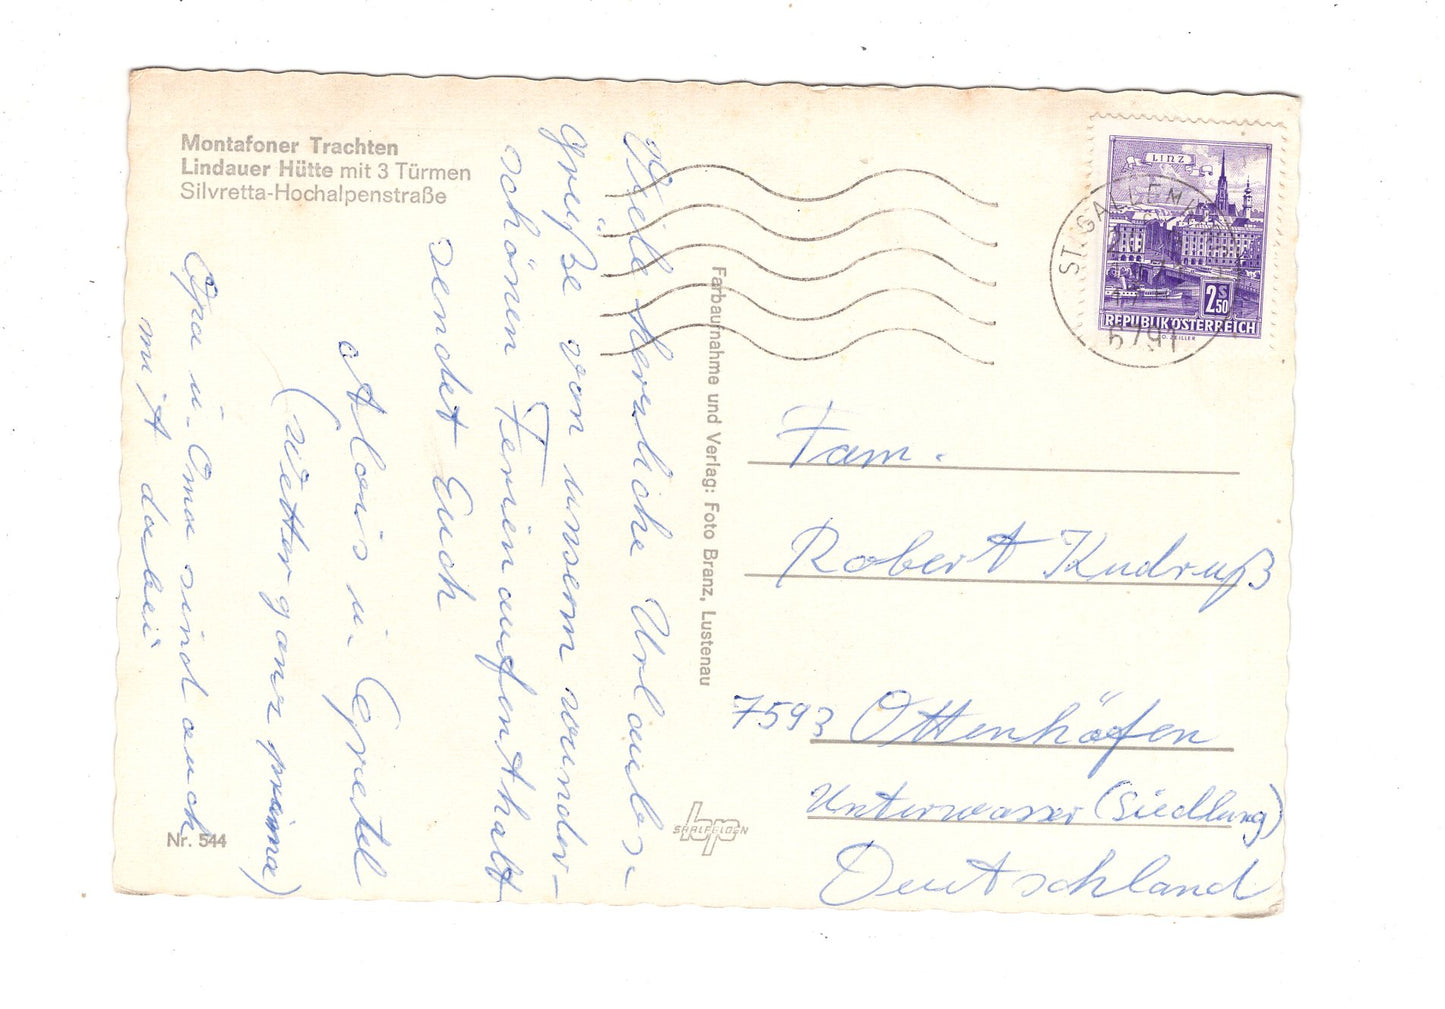 Montafoner Trachten
Lindauer Hütte mit 3 Türmen
Silvretta-Hochalpenstraße
Viele herzliche Urlaubs-
grüße von unserm wunder-
schönen Ferienaufenthalt
sendet Euch
Alois u. Gretel
(Wetter ganz prima)
Opa u. Oma sind auch
mit dabei
Nr. 544
Farbaufnahme und Verlag: Foto Branz, Lustenau
SAALFELDEN
LINZ
2 S 50
REPUBLIK ÖSTERREICH
ST. GALLENK
6791
Fam.
Robert Kndruß
7593 Ottenhöfen
Unterwasser (Siedlung)
Deutschland